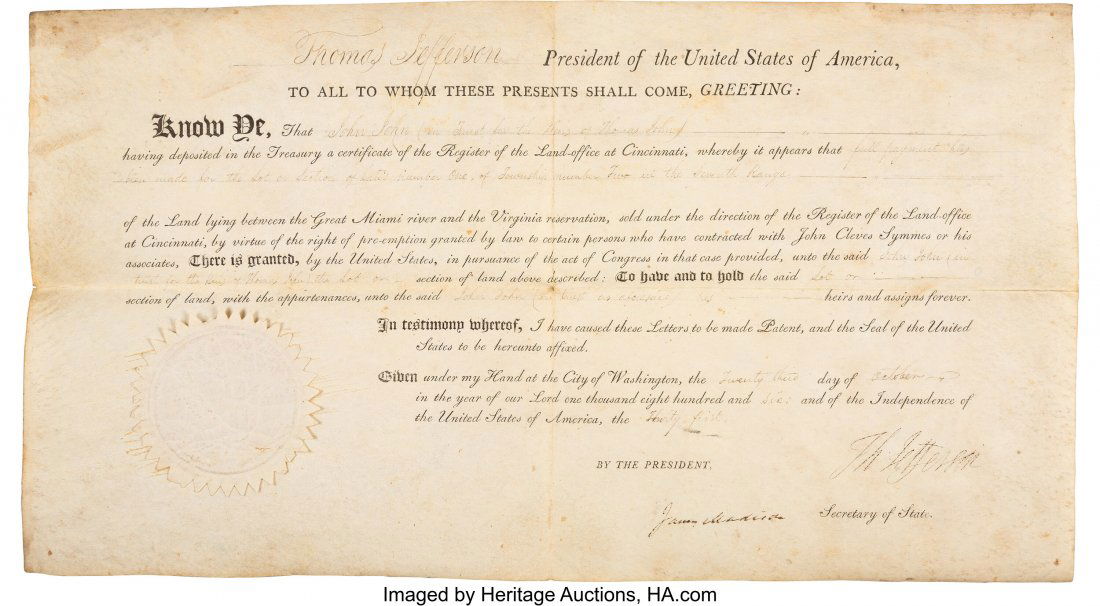 Thomas Jefferson President of the United States of America,
TO ALL TO WHOM THESE PRESENTS SHALL COME, GREETING:
Know Ye, That John John (in Trust for the heirs of Thomas John)
having deposited in the Treasury a certificate of the Register of the Land-office at Cincinnati, whereby it appears that full payment has
been made for the Lot or Section of Land number One, of Township number Two in the Seventh Range
of the Land lying between the Great Miami river and the Virginia reservation, sold under the direction of the Register of the Land-office
at Cincinnati, by virtue of the right of pre-emption granted by law to certain persons who have contracted with John Cleves Symmes or his
associates, There is granted, by the United States, in pursuance of the act of Congress in that case provided, unto the said John John (in
trust for the heirs of Thomas John) the Lot or section of land above described: To have and to hold the said Lot or
section of land, with the appurtenances, unto the said John John (in trust as heirs and assigns forever.
In testimony whereof, I have caused these Letters to be made Patent, and the Seal of the United
States to be hereunto affixed.
Given under my Hand at the City of Washington, the Twenty third day of October
in the year of our Lord one thousand eight hundred and six: and of the Independence of
the United States of America, the Thirty first.
Th Jefferson
BY THE PRESIDENT,
James Madison Secretary of State.
Imaged by Heritage Auctions, HA.com